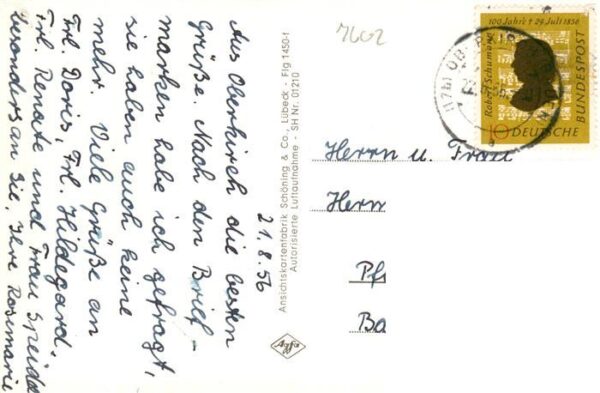 21.8.56
Aus Oberkirch die besten
Grüße. Nach den Brief-
marken habe ich gefragt,
sie haben auch keine
mehr. Viele Grüße an
Frl. Doris, Frl. Hildegard.
Frl. Renate und Frau Speidel
besonders an Sie, Ihre Rosemarie
Ansichtskartenfabrik Schöning & Co., Lübeck - Flg 1450-1
Autorisierte Luftaufnahme - SH Nr. 01210
Agfa
7602
100. Jahre † 29. Juli 1856
Robert Schumann
DEUTSCHE
BUNDESPOST
10
Herrn u. Frau
Herm
Pf
Ba